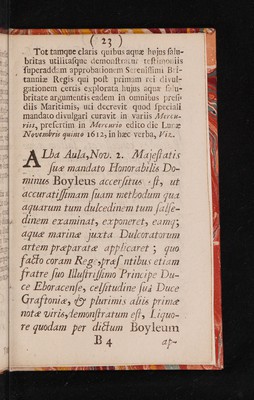 ( 23 )
Tot tamque claris quibus aquæ hujus salu-
britas utilitasque demonstratur testimoniis
superaddam approbationem Serenissimi Bri-
tanniæ Regis qui post primam rei divul-
gationem certis explorata hujus aquæ salu-
britate argumentis eadem in omnibus præsi-
diis Maritimis, uti decrevit quod speciali
mandato divulgari curavit in variis Mercu-
riis, præsertim in Mercurio edito die Lunæ
Novembris quinto 1612, in hæc verba, Viz.
ALba Aula, Nov. 2. Majestatis
suæ mandato Honorabilis Do-
minus Boyleus accersitus est, ut
accuratissimam suam methodum qua
aquarum tum dulcedinem tum salse-
dinem examinat, exponeret, eamq;
aquæ marinæ juxta Dulcoratorum
artem præparatæ applicaret; quo
facto coram Rege, præsentibus etiam
fratre suo Illustrissimo Principe Du-
ce Eboracense, celsitudine suâ Duce
Graftoniæ, & plurimis aliis primæ
notæ viris, demonstratum est, Liquo-
re quodam per dictum Boyleum
B 4
ap-